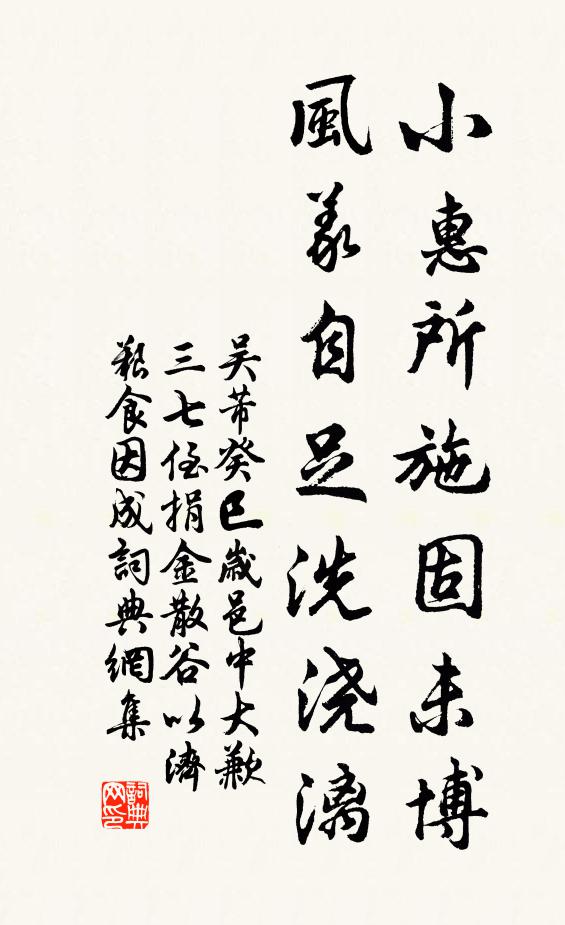 小惠所施固未博
風義自足洗浇漓
吴芾癸巳歲邑中大歉
三七侄捐金散谷以濟
艱食因成詞典網集
詞典
网印